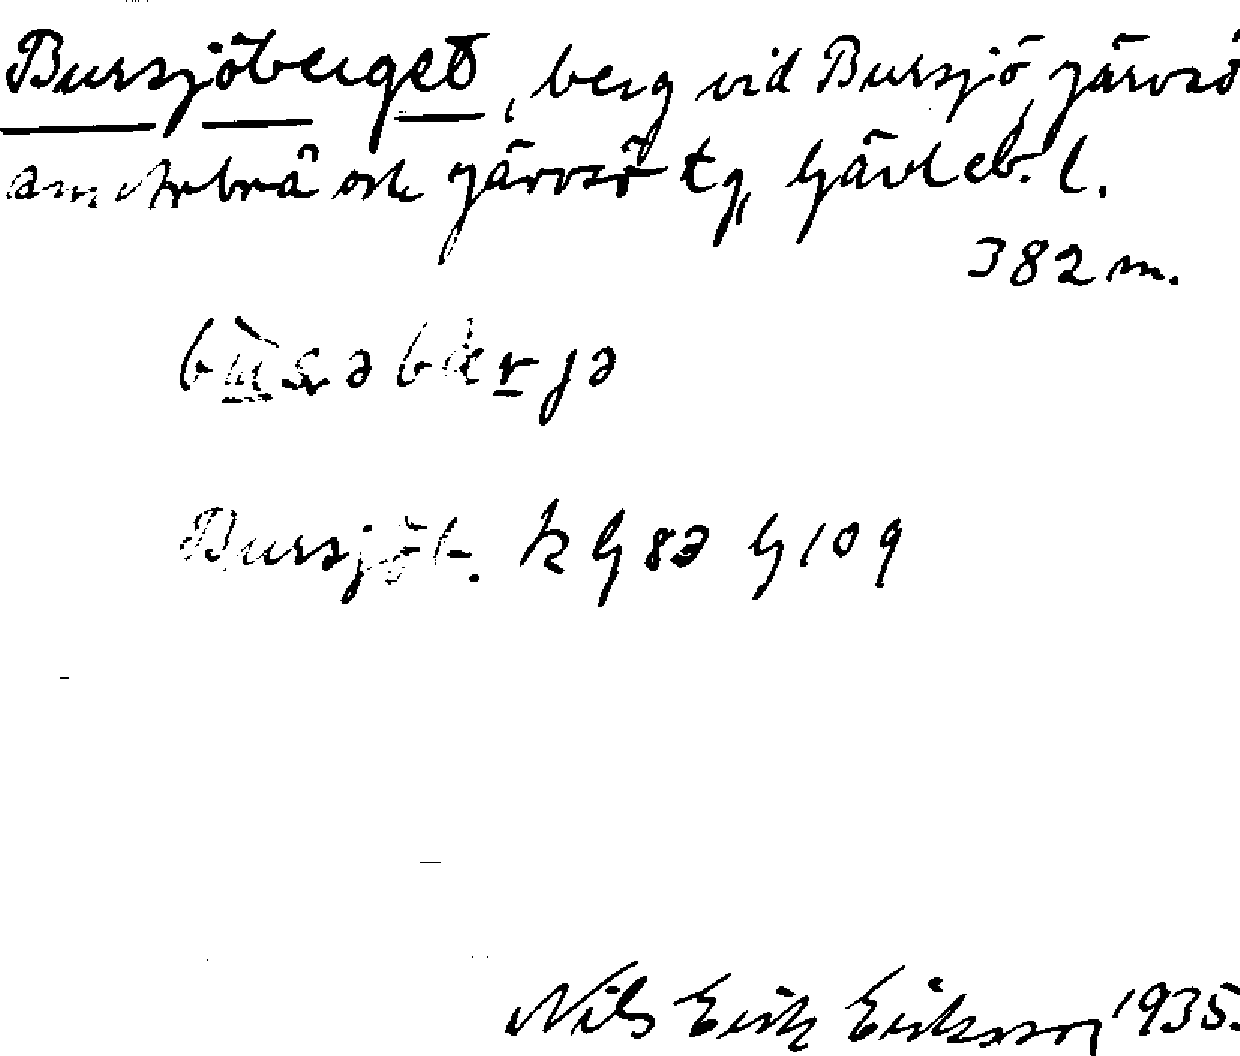 Bursjöberget, berg vid Bursjö, Järvsö
sn, Arbrå och Järvsö tg, Gävleb. l.
382 m.
bùsəbærjə
Bursjöb. k G 82 G 109
Nils Erik Eriksson 1935.